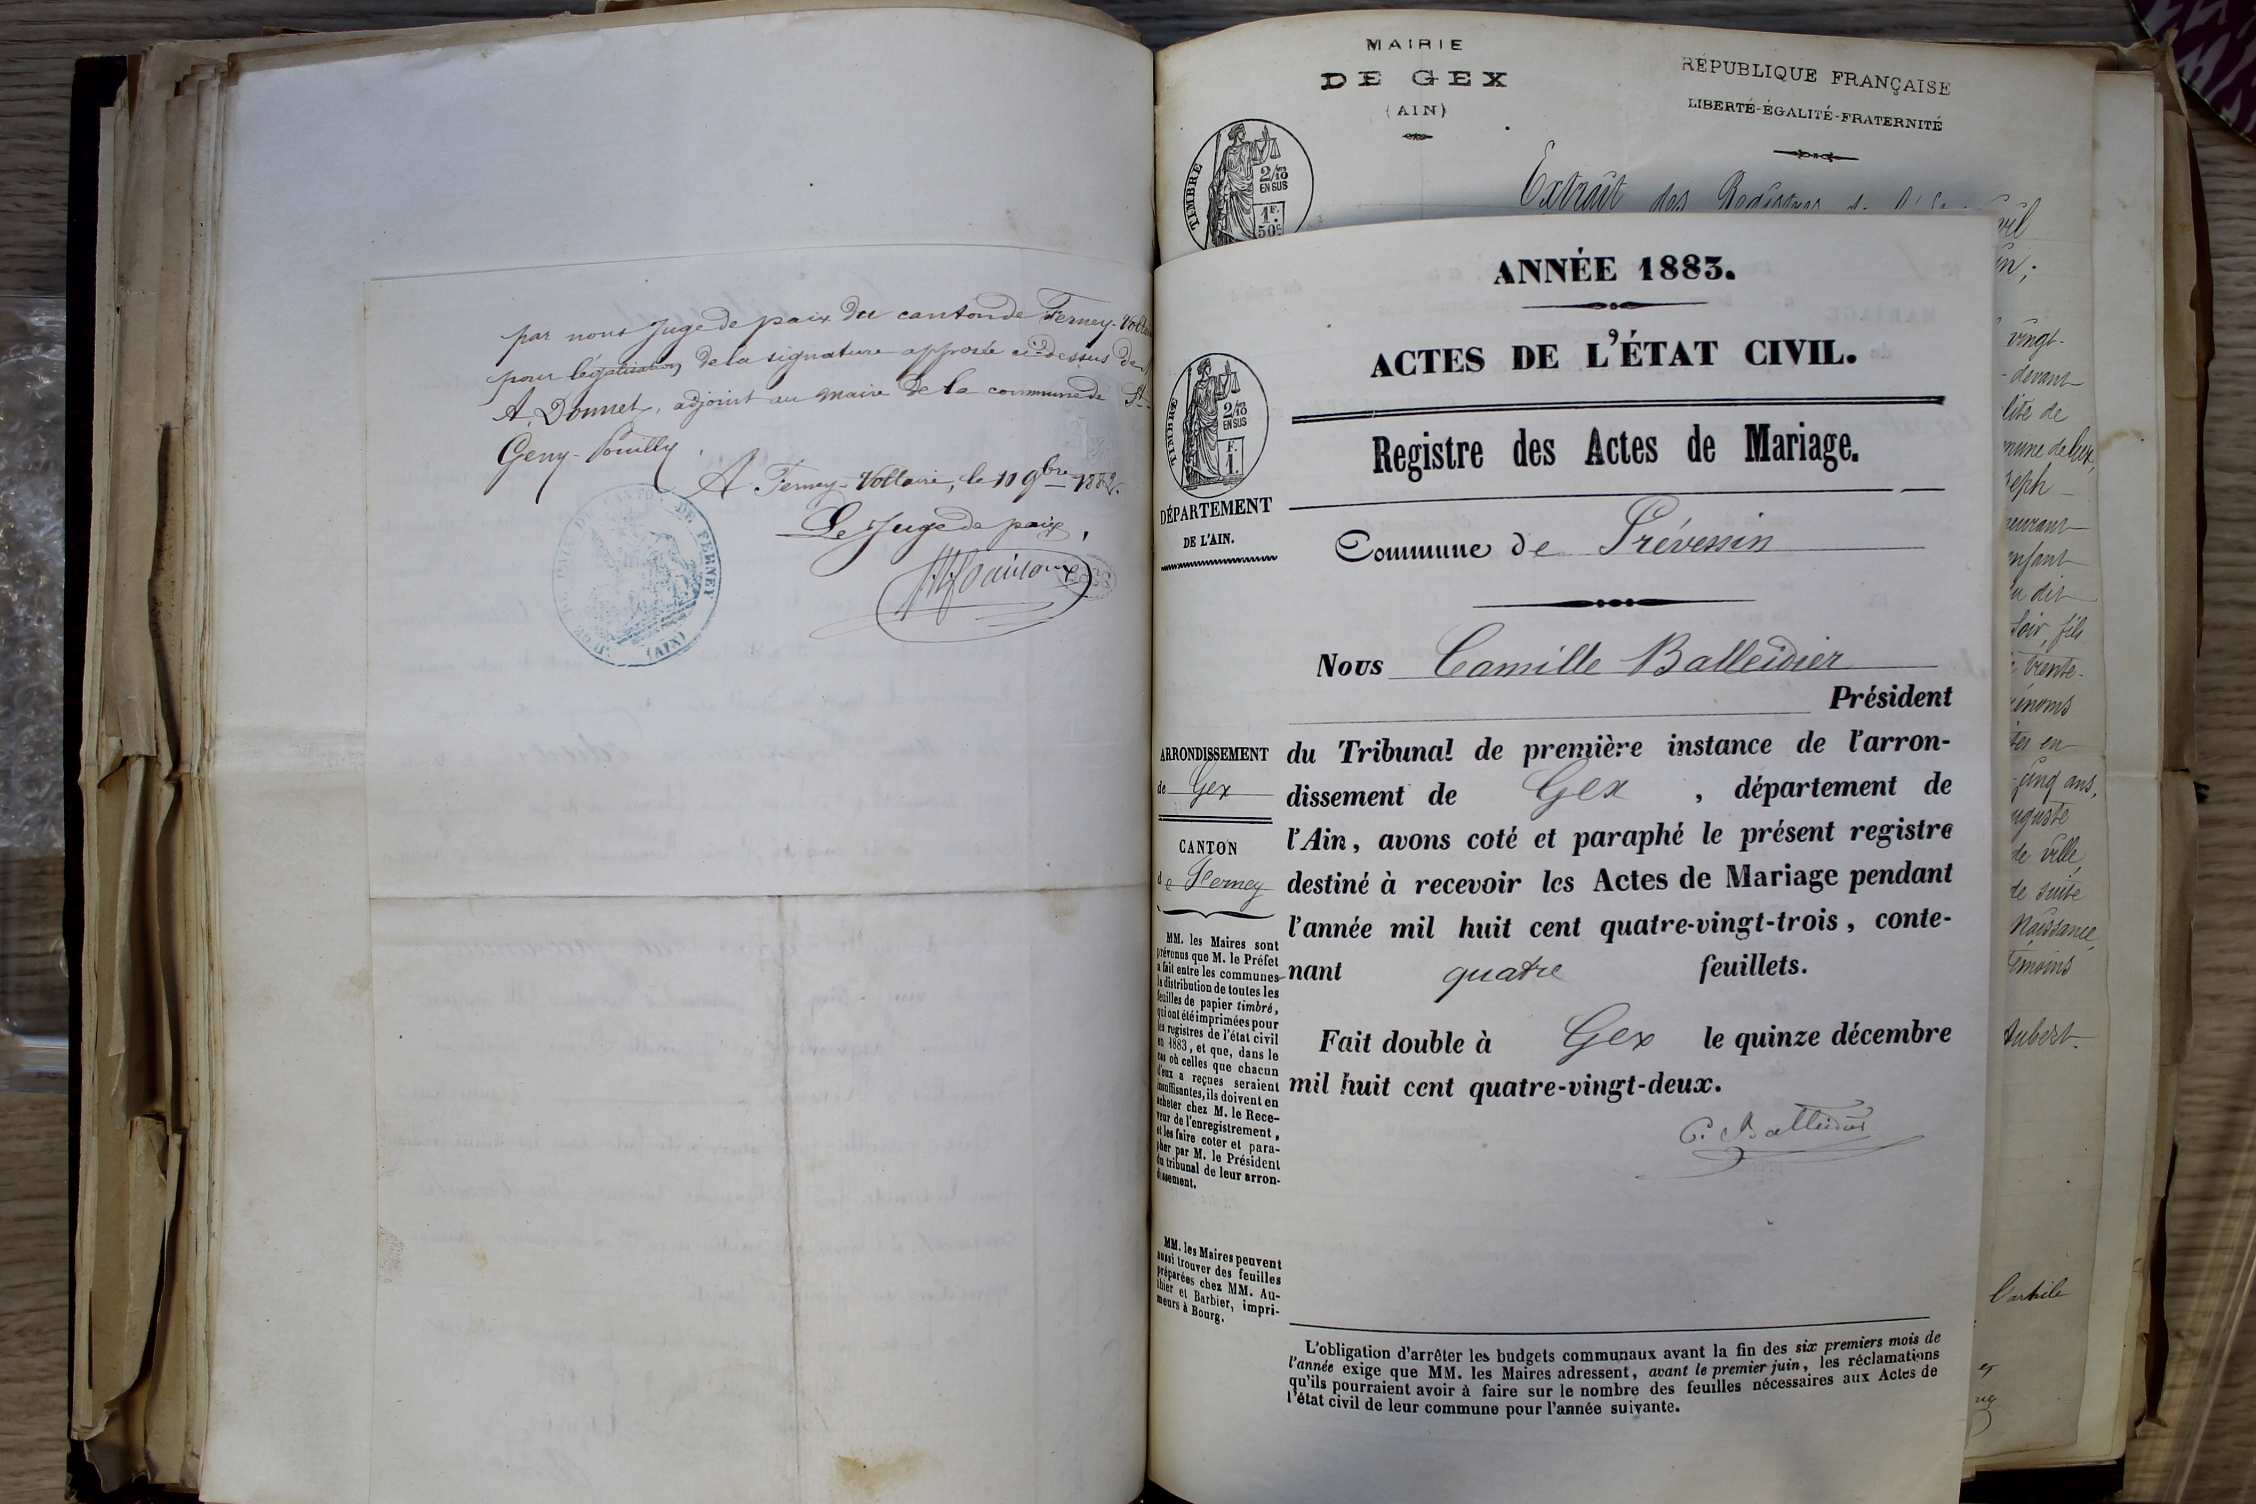 par nous Juge de paix du canton de Ferney-Voltaire
pour légalisation de la signature apposée ci-dessus de
A. Donnet, adjoint au maire de la commune de St-
Geny-Pouilly.
A Ferney-Voltaire, le 10 9bre 1882.
Le Juge de paix,
DE FERNEY
(AIN)
MAIRIE
DE GEX
(AIN)
RÉPUBLIQUE FRANÇAISE
LIBERTÉ-ÉGALITÉ-FRATERNITÉ
TIMBRE
2/10
EN SUS
1F.
50c
Extrait des Registres de
vingt-
devant
de
de Gex,
dit
soir, fils
trente-
en
cinq ans,
de ville
de suite
Naissance,
témoins
Aubert.
ANNÉE 1883.
ACTES DE L'ÉTAT CIVIL.
Registre des Actes de Mariage.
TIMBRE
2/10
EN SUS
F.
1.
DÉPARTEMENT
DE L'AIN.
Commune de Prévessin
Nous Camille Balleidier
Président
ARRONDISSEMENT
de Gex
CANTON
de Ferney
du Tribunal de première instance de l'arron-
dissement de Gex, département de
l'Ain, avons coté et paraphé le présent registre
destiné à recevoir les Actes de Mariage pendant
l'année mil huit cent quatre-vingt-trois, conte-
nant quatre feuillets.
Fait double à Gex le quinze décembre
mil huit cent quatre-vingt-deux.
C. Balleidier
MM. les Maires sont
prévenus que M. le Préfet
a fait entre les communes
la distribution de toutes les
feuilles de papier timbré,
qui ont été imprimées pour
les registres de l'état civil
en 1883, et que, dans le
cas où celles que chacun
d'eux a reçues seraient
insuffisantes, ils doivent en
acheter chez M. le Rece-
veur de l'enregistrement,
et les faire coter et para-
pher par M. le Président
du tribunal de leur arron-
dissement.
MM. les Maires peuvent
aussi trouver des feuilles
préparées chez MM. Au-
thier et Barbier, impri-
meurs à Bourg.
L'obligation d'arrêter les budgets communaux avant la fin des six premiers mois de
l'année exige que MM. les Maires adressent, avant le premier juin, les réclamations
qu'ils pourraient avoir à faire sur le nombre des feuilles nécessaires aux Actes de
l'état civil de leur commune pour l'année suivante.